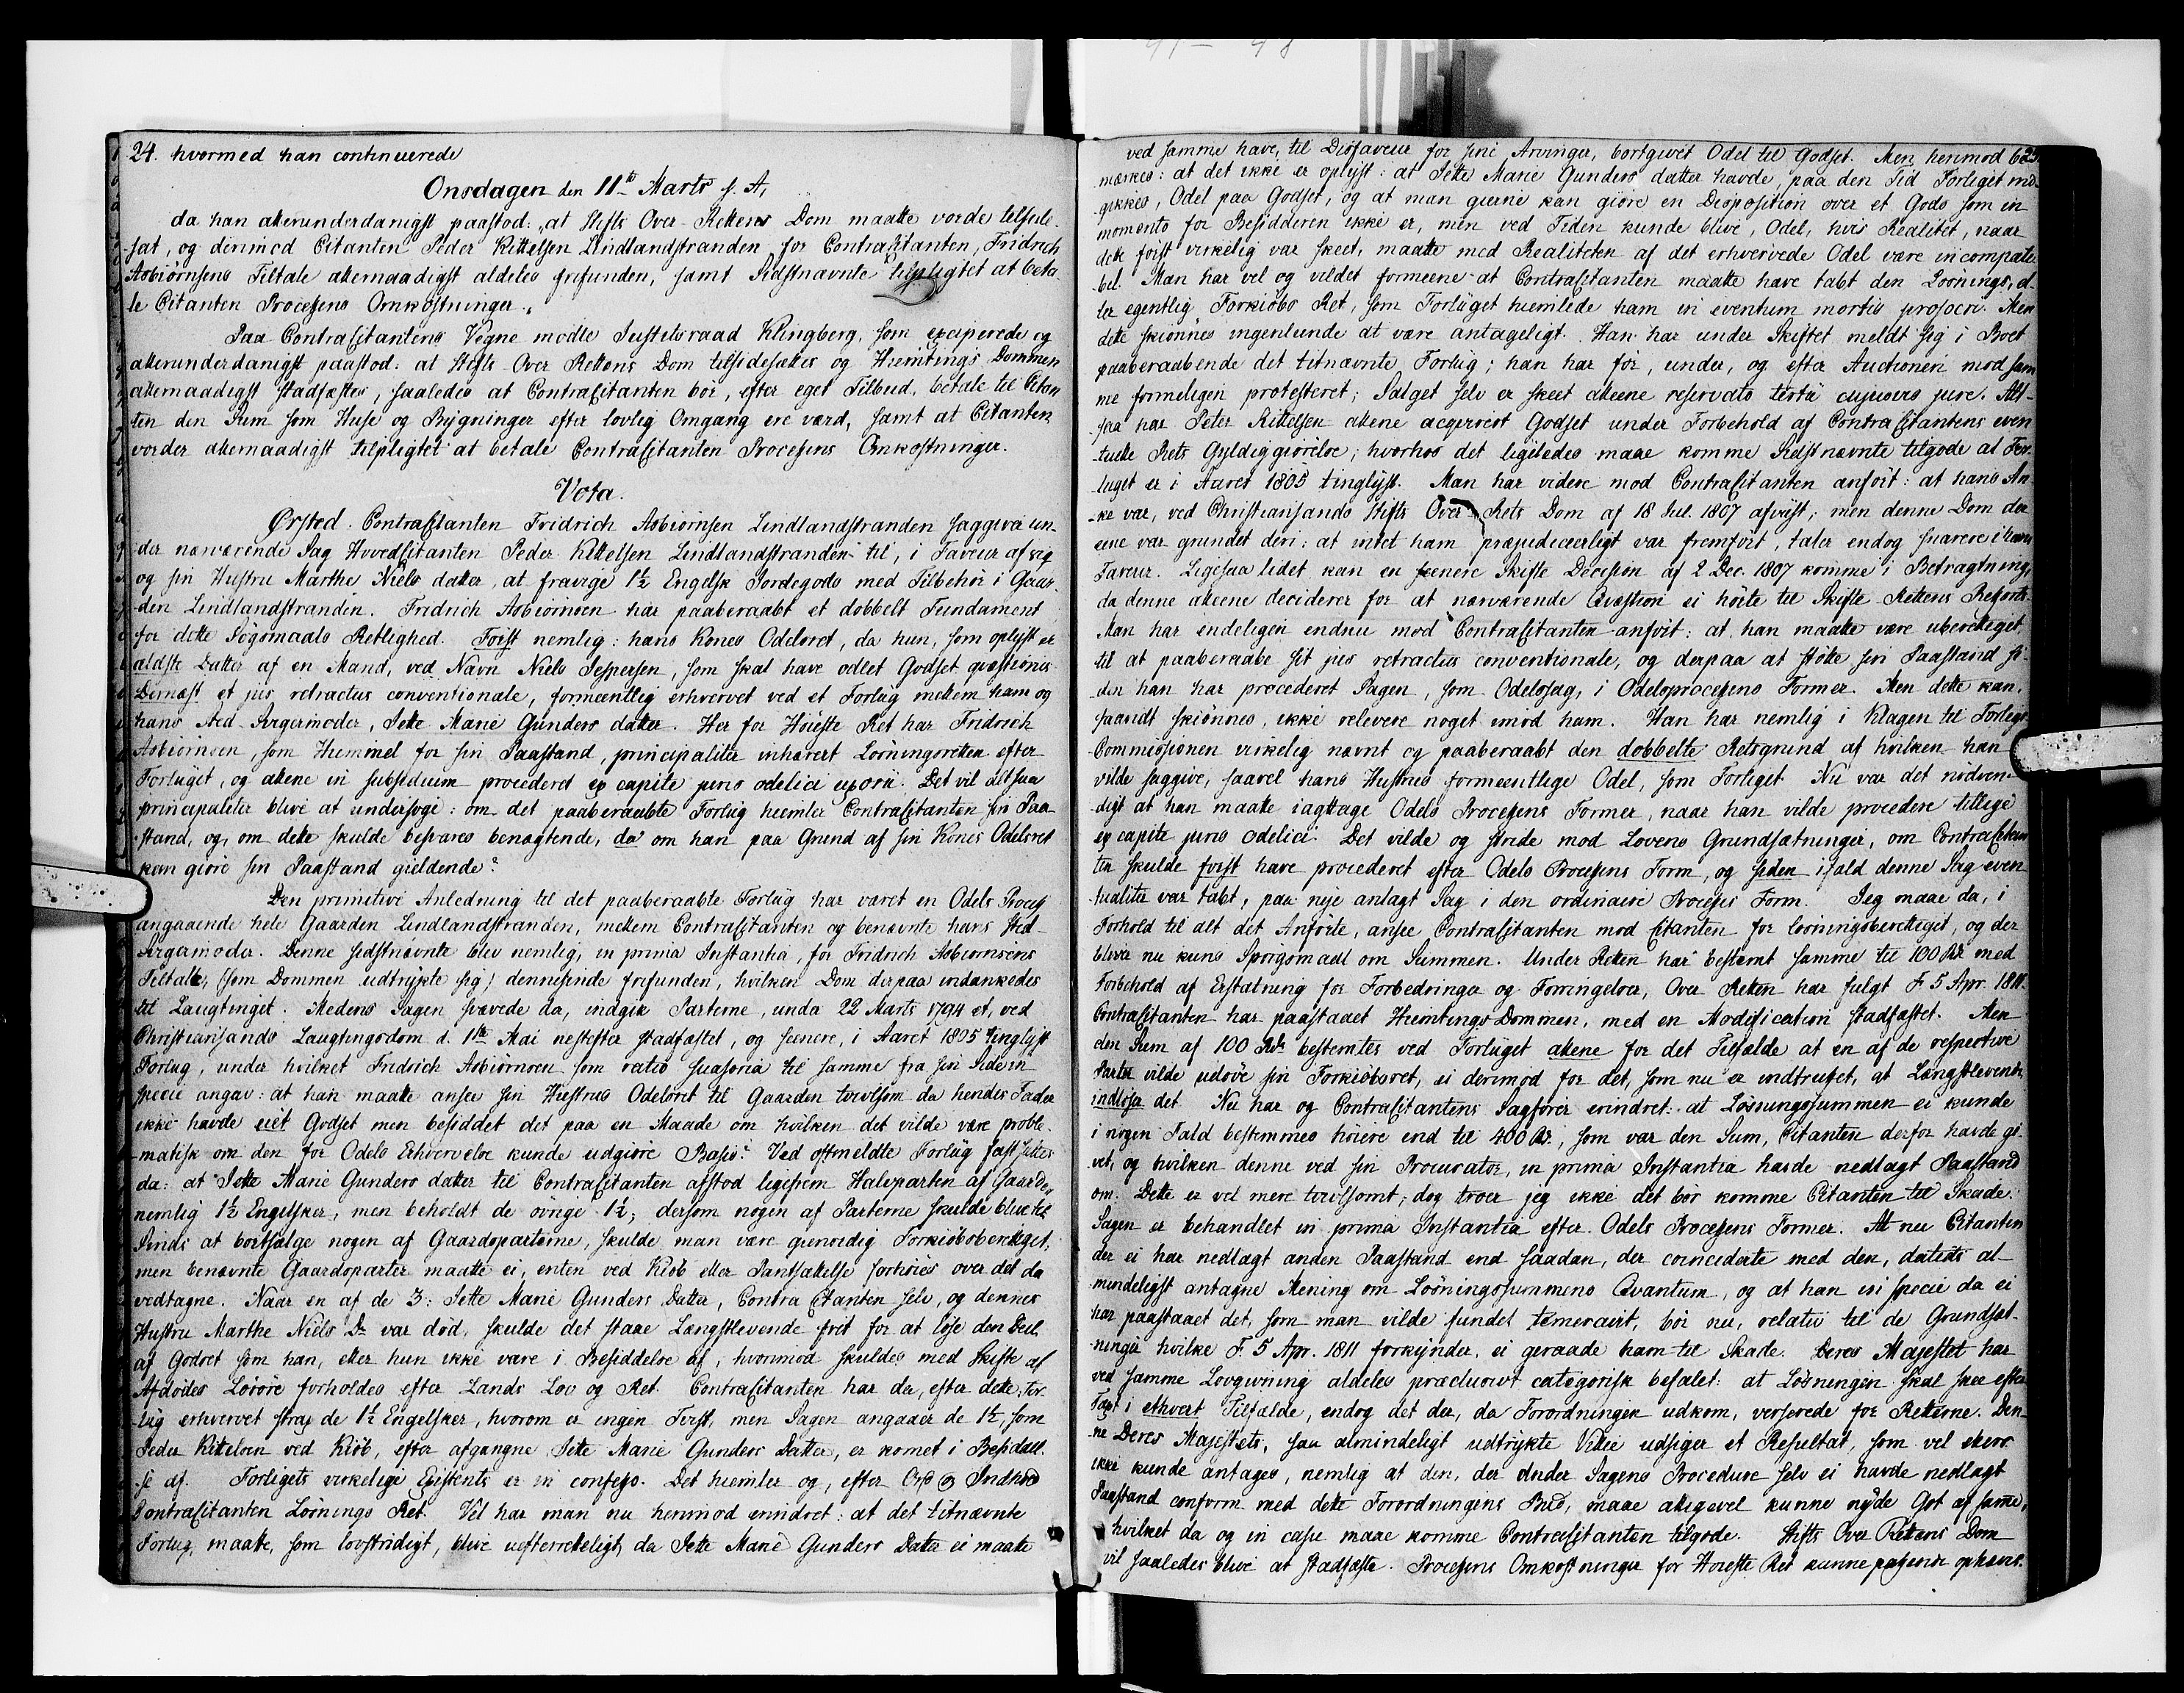 24. hvormed han continuerede
Onsdagen den 11te Marts s. A,
da han allerunderdanigst paastod: "at Stifts Over-Rettens Dom maatte vorde tilside-
sat, og derimod Citanten Peder Kittelsen Lindlandstranden for ContraCitanten, Fridrich
Asbiørnsens Tiltale allernaadigst aldeles frifunden, samt Sidstnævnte tilpligtet at beta-
le Citanten Processens Omkostninger."
Paa ContraCitantens Vegne mødte Justitsraad Klingberg, som exciperede og
allerunderdanigst paastod: at Stifts Over Rettens Dom tilsidesættes og Hiemtings Dommen
allernaadigst stadfæstes, saaledes at ContraCitanten bør, efter eget Tilbud, betale til Citan
ten den Sum som Huse og Bygninger efter lovlig Omgang ere værd, samt at Citanten
vorder allernaadigst tilpligtet at betale ContraCitanten Processens Omkostninger.
Vota.
Ørsted. ContraCitanten Fridrich Asbiørnsen Lindlandstranden saggiver un-
der nærværende Sag HovedCitanten Peder Kittelsen Lindlandstranden til, i Faveur af sig
og sin Hustru Marthe Niels datter, at fravige 1½ Engelsk Jordegods med Tilbehør i Gaar-
den Lindlandstranden. Fridrich Asbiørnsen har paaberaabt et dobbelt Fundament
for dette Søgsmaals Retlighed. Først nemlig: hans Kones Odelsret, da hun, som oplyst er
ældste Datter af en Mand, ved Navn Niels Jespersen, som skal have odlet Godset quæstionis
Dernæst et jus retractus conventionale, formeentlig erhvervet ved et Forlig mellem ham og
hans Sted-Svigermoder, Jette Marie Gunders datter. Her for Høieste Ret har Fridrich
Asbiørnsen, som Hiemmel for sin Paastand, principaliter inhæreret Løsningsretten efter
Forliget, og allene in subsidium procederet ex capite juris odelici uxoris. Det vil altsaa
principaliter blive at undersøge: om det paaberaabte Forlig hiemler ContraCitanten sin Paa-
stand, og, om dette skulde besvares benægtende, da om han paa Grund af sin Kones Odelsret
kan giøre sin Paastand gieldende?
Den primitive Anledning til det paaberaabte Forlig har været en Odels Proces
angaaende hele Gaarden Lindlandstranden, mellem ContraCitanten og benævnte hans Sted-
Svigermoder. Denne sidstnævnte blev nemlig, in prima Instantia, for Fridrich Asbiørnsens
Tiltale, (som Dommen udtrykte sig) dennesinde frifunden, hvilken Dom derpaa indankedes
til Laugtinget. Medens Sagen svævede da, indgik Parterne, under 22 Marts 1794 et, ved
Christiansands Laugtingsdom d. 1ste Mai nestefter stadfæstet, og senere, i Aaret 1805 tinglyst
Forlig, under hvilket Fridrich Asbiørnsen som ratio suasoria til samme fra sin Side in
specie angav: at han maatte ansee sin Hustrus Odelsret til Gaarden tvivlsom da hendes Fader
ikke havde eiet Godset men besiddet det paa en Maade om hvilken det vilde være proble-
matisk om den for Odels Erhvervelse kunde udgiøre Basis. Ved oftmeldte Forlig fastsættes
da: at Jette Marie Gunders datter til ContraCitanten afstod ligesom Halvparten af Gaarden
nemlig 1½ Engelsker, men beholdt de øvrige 1½; dersom nogen af Parterne skulde blive til
Sinds at bortsælge nogen af Gaardsparterne, skulde man være giensidig Forkiøbsberettiget,
men benævnte Gaardsparter maatte ei, enten ved Kiøb eller Pantsættelse forhøies over det da
vedtagne. Naar en af de 3: Jette Marie Gunders Datter, Contra Citanten selv, og dennes
Hustru Marthe Niels Dr var død, skulde det staae Længstlevende frit for at løse den Deel
af Godset som han, eller hun ikke være i Besiddelse af, hvorimod skuldes med Skifte af
Afdødes Løsøre forholdes efter Lands Lov og Ret. ContraCitanten har da, efter dette For-
lig erhvervet strax de 1½ Engelsker, hvorom er ingen Tvist, men Sagen angaaer de 1½, som
Peder Kittelsen ved Kiøb, efter afgangne Jette Marie Gunders Datter, er komet i Besiddel-
se af. Forligets virkelige Existents er in confesso. Det hiemler og, efter Ord og Indhold
ContraCitanten Løsnings Ret. Vel har man nu herimod erindret: at det titnævnte
Forlig, maatte, som lovstridigt, blive uefterretteligt, da Jette Marie Gunders Datter ei maatte
ved samme have, til Disfaveur for sine Arvinger, bortgivet Odel til Godset. Men herimod be-
mærkes: at det ikke er oplyst: at Jette Marie Gunders datter havde, paa den Tid Forliget ind-
gikkes, Odel paa Godset, og at man gierne kan giøre en Disposition over et Gods som in
momento for Besidderen ikke er, men ved Tiden kunde blive, Odel, hvis Realitet, naar
dette først virkelig var skeet, maatte med Realiteten af det erhvervede Odel være incompati-
bel. Man har vel og villet formeene at ContraCitanten maatte have tabt den Løsnings, el-
ler egentlig Forkiøbs Ret, som Forliget hiemlede ham in eventum mortis prosocri. Men
dette skiønnes ingenlunde at være antageligt. Han har under Skiftet meldt sig i Boet
paaberaabende det titnævnte Forlig; han har før, under, og efter Auctionen mod sam
me formeligen protesteret; Salget selv er skeet alleene reservato tertii cujusvis jure. Alt-
saa har Peter Kittelsen allene acqvireret Godset under Forbehold af ContraCitantens even
tuelle Rets Gyldiggiørelse; hvorhos det ligeledes maae komme Sidstnævnte tilgode at For-
liget er i Aaret 1805 tinglyst. Man har videre mod ContraCitanten anført: at hans An-
ke var, ved Christiansands Stifts Over Rets Dom af 18 Jul. 1807 afviist; men denne Dom der
eene var grundet deri: at intet ham præjudiceerligt var fremført, taler endog snarere i hans
Faveur. Ligesaa lidet kan en seenere Skifte Decision af 2 Dec. 1807 komme i Betragtning,
da denne alleene deciderer for at nærværende Qvæstion ei hørte til Skifte-Rettens Resort-
Man har endeligen endnu mod ContraCitanten anført: at han maatte være uberettiget
til at paaberaabe sit jus retractus conventionale, og derpaa at støtte sin Paastand si-
den han har procederet Sagen, som Odelssag, i Odelsprocessens Former. Men dette kan,
saavidt skiønnes, ikke relevere noget imod ham. Han har nemlig i Klagen til Forligs-
Commissionen virkelig nævnt og paaberaabt den dobbelte Retsgrund af hvilken han
vilde saggive, saavel hans Hustrus formeentlige Odel, som Forliget Nu var det nødven-
digt at han maatte iagttage Odels Processens Former, naar han vilde procedere tillige
ex capite juris odelici. Det vilde og stride mod Lovens Grundsætninger, om ContraCitan
ten skulde først have procederet efter Odels Processens Form, og siden ifald denne Sag even
tualiter var tabt, paa nye anlagt Sag i den ordinaire Proces's Form. Jeg maae da, i
Forhold til alt det Anførte, ansee ContraCitanten mod Citanten for løsningsberettiget, og der
bliver nu kuns Spørgsmaal om Summen. Under Retten har bestemt samme til 100 Rd med
Forbehold af Erstatning for Forbedringer og Forringelser, Over Retten har fulgt F. 5 Apr. 1811.
ContraCitanten har paastaaet Hiemtings Dommen, med en Modification stadfæstet. Men
den Sum af 100 Rdr bestemtes ved Forliget allene for det Tilfælde at en af de respective
Parter vilde udøve sin Forkiøbsret, ei derimod for det, som nu er indtruffet, at Længstlevende
indløser det. Nu har og ContraCitantens Sagfører erindret: at Løsningssummen ei kunde
i nogen Fald bestemmes høiere end til 400 Rd., som var den Sum, Citanten derfor havde gi-
vet, og hvilken denne ved sin Procurator, in prima Instantia havde nedlagt Paastand
om. Dette er vel mere tvivlsomt; dog troer jeg ikke det bør komme Citanten til Skade.
Sagen er behandlet in prima Instantia efter Odels Processens Former. At nu Citanten
der ei har nedlagt anden Paastand end saadan, der coinciderte med den, datids al-
mindeligst antagne Mening om Løsningssummens Qvantum, og at han in specie da ei
har paastaaet det, som man vilde fundet temerairt, bør nu, relativ til de Grundsæt-
ninger hvilke F. 5 Apr. 1811 forkynder, ei geraade ham til Skade. Deres Majestet har
ved samme Lovgivning aldeles categorisk befalet: at Løsningen skal skee efter
Taxt i ethvert Tilfælde, endog det der, da Forordningen udkom, verserede for Retterne. Den-
ne Deres Majestets, saa almindeligt udtrykte Villie udsiger et Resultat, som vel ellers
ikke kunde antages, nemlig at den, der under Sagens Procedure selv ei havde nedlagt
Paastand conform med dette Forordningens Bud, maae alligevel kunne nyde Got af samme,
hvilket da og in casu maae komme ContraCitanten tilgode. Stifts Over Rettens Dom
vil saaledes blive at stadfæste. Processens Omkostninger for Høieste Ret kunne passende ophæves.